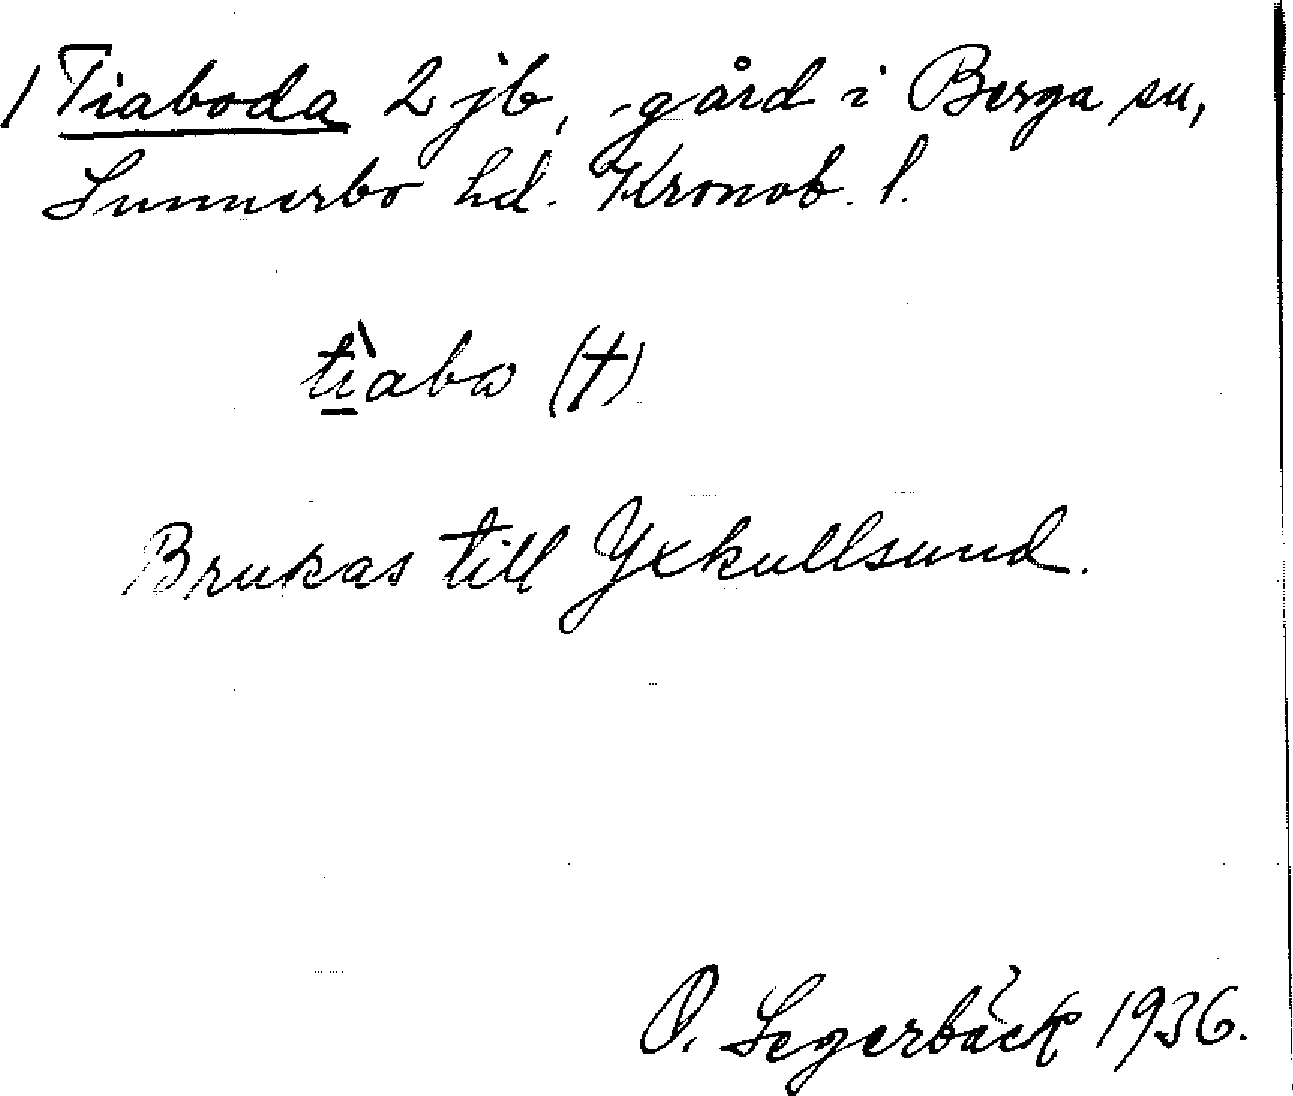 / Tiaboda 2 jb, gård i Berga sn,
Sunnerbo hd. Kronob. l.
tìabo (†)
Brukas till Yxkullsund.
O. Segerbäck 1936.